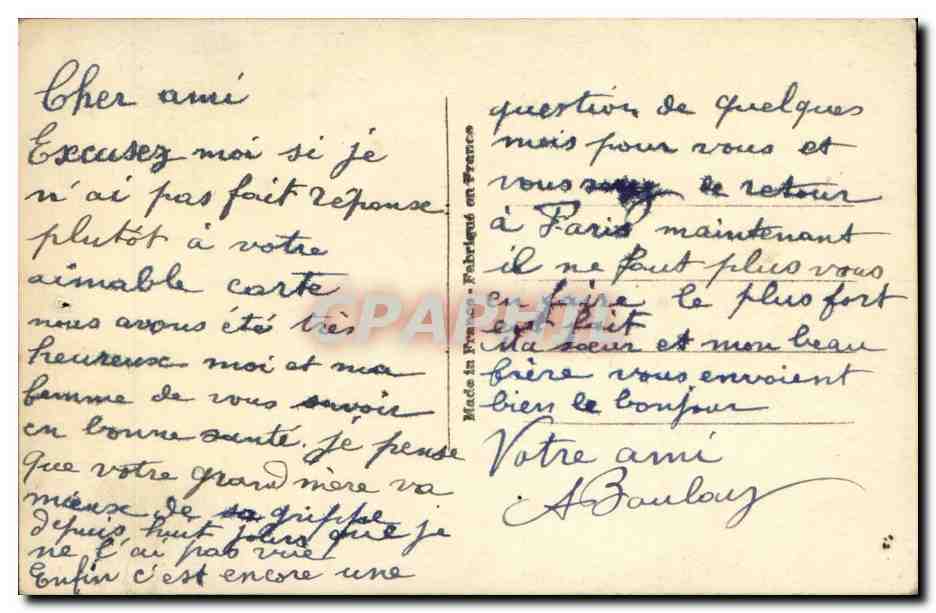 Cher ami
Excusez moi si je
n'ai pas fait réponse
plutôt à votre
aimable carte
nous avons été très
heureux moi et ma
femme de vous savoir
en bonne santé. je pense
que votre grand mère va
mieux de sa grippe
depuis huit jours que je
ne l'ai pas vue!
Enfin c'est encore une
question de quelques
mois pour vous et
vous de retour
à Paris maintenant
il ne faut plus vous
en faire le plus fort
est fait
Ma sœur et mon beau
frère vous envoient
bien le bonjour
Votre ami
A Boulay
Made in France - Fabriqué en France
CPAPHIL